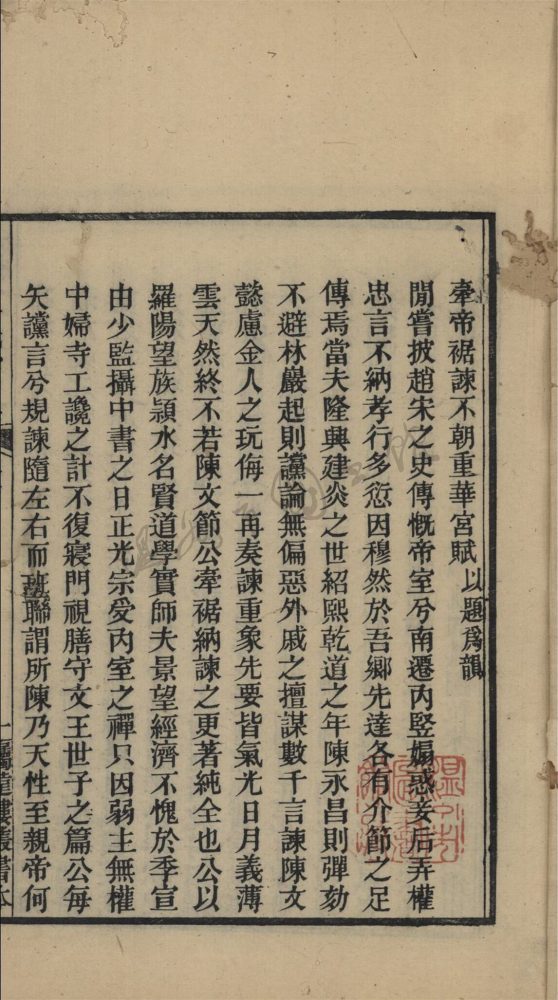 牽帝裾諫不朝重華宮賦 以題爲韻
閒嘗披趙宋之史傳慨帝室兮南遷內竪煽惑妾后弄權
忠言不納孝行多愆因穆然於吾鄉先達各有介節之足
傳焉當夫隆興建炎之世紹熙乾道之年陳永昌則彈劾
不避林嚴起則讜論無偏惡外戚之擅謀數千言諫陳文
懿慮金人之玩侮一再奏諫重象先要皆氣光日月義薄
雲天然終不若陳文節公牽裾納諫之更著純全也公以
羅陽望族潁水名賢道學實師夫景望經濟不愧於季宣
由少監攝中書之日正光宗受內室之禪只因弱主無權
中婦寺工讒之計不復寢門視膳守文王世子之篇公每
矢讜言兮規諫隨左右而班聯謂所陳乃天性至親帝何